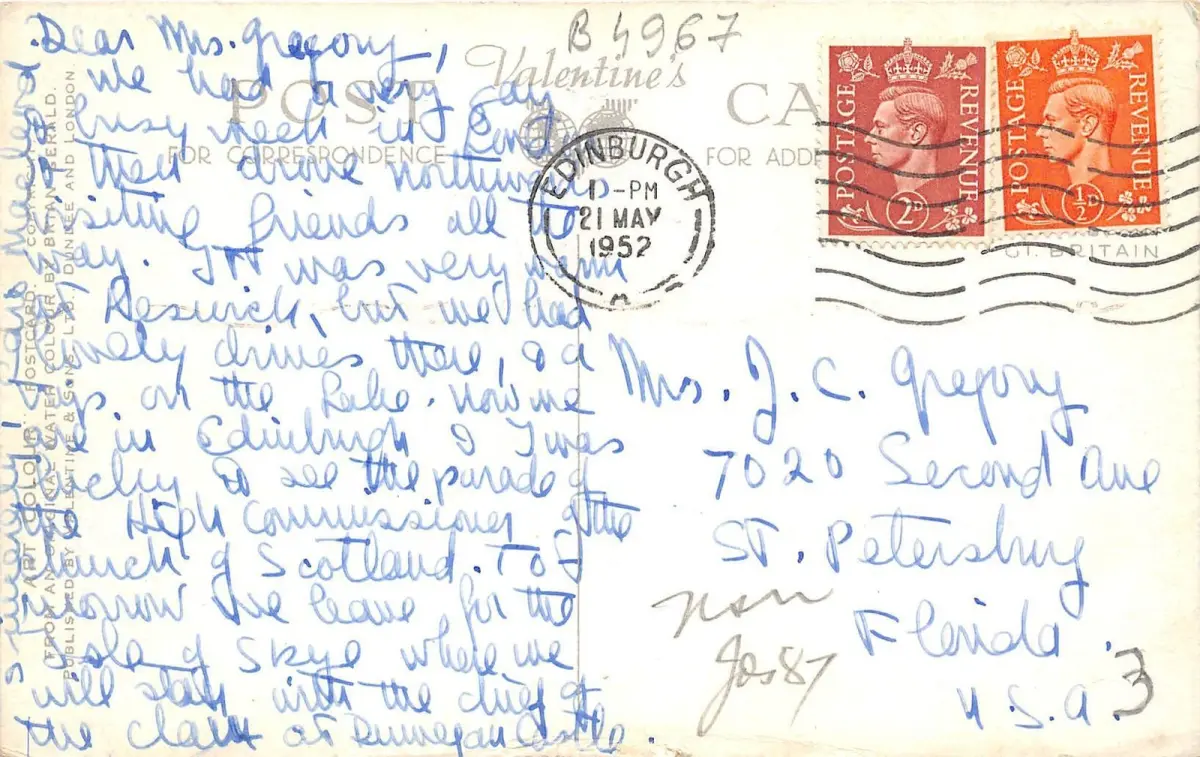 B4967
Dear Mrs. Gregory,
we had a very gay
& busy week in Lond
then drove northwards
visiting friends all the
way. It was very warm
at Keswick, but we had
lovely drives there, & a
on the Lake. Now we
are in Edinburgh & I was
lucky to see the parade of
the High Commissioner of the
Church of Scotland. To
morrow we leave for the
Isle of Skye where we
will stay with the chief of
the clan at Dunvegan Castle.
Sincerely,
POST CA
Valentine's
FOR CORRESPONDENCE
FOR ADD
"ART COLOUR" POSTCARD.
FROM AN ORIGINAL WATER COLOUR BY BRIAN GERALD.
PUBLISHED BY VALENTINE & SONS, LTD., DUNDEE AND LONDON.
EDINBURGH
1-PM
21 MAY
1952
A
POSTAGE REVENUE
2D
POSTAGE REVENUE
½D
GT. BRITAIN
Mrs. J. C. Gregory
7020 Second Ave
St. Petersburg
Florida.
U.S.A.
3